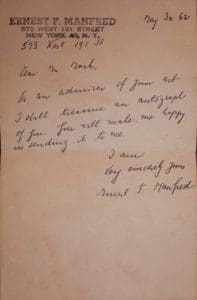 ERNEST F. MANFRED
573 WEST 191 STREET
NEW YORK 40, N. Y.
May 30 62
573 West 191 St
Dear Mr
As an admirer of your art
I shall treasure an autograph
of you. You will made me happy
in sending it to me.
I am
Very sincerely yours
Ernest F. Manfred